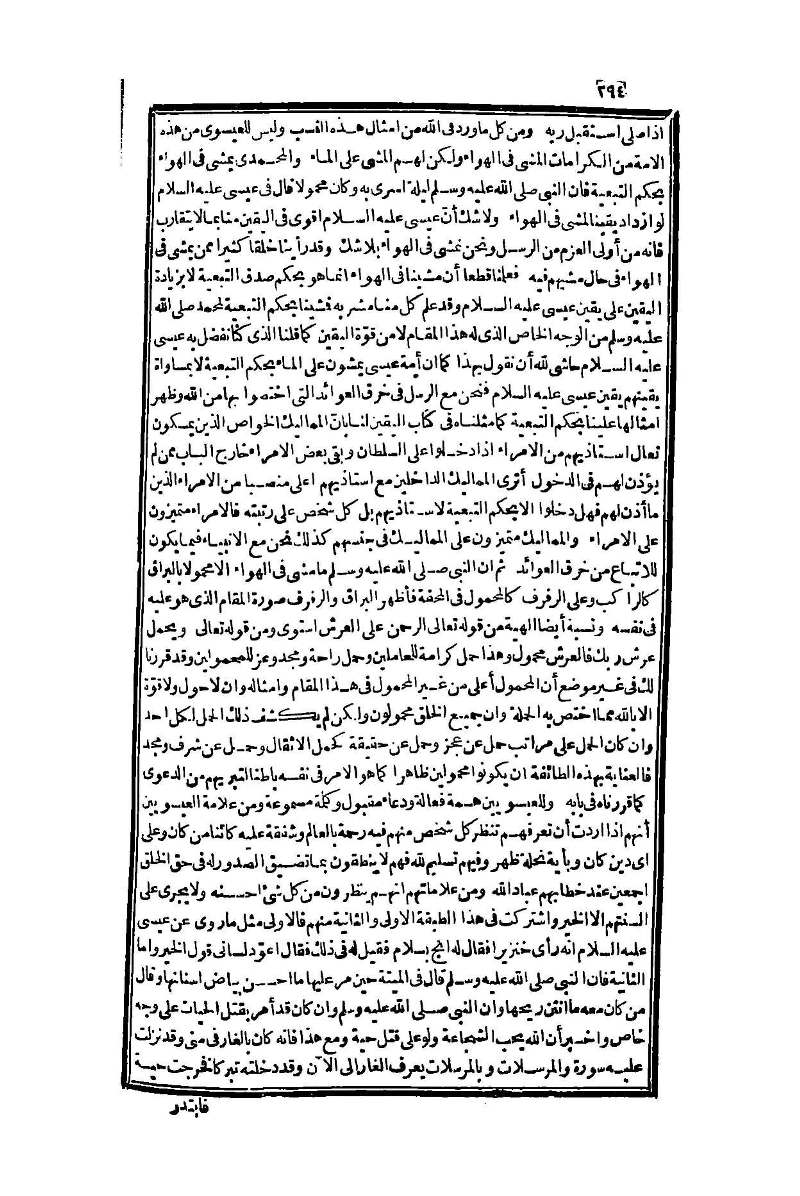 ٢٩٤
اذا صلى استقبل ربه ومن كل ما ورد فى الله من امثال هذه النسب وليس للعيسوى من هذه
الامة من الكرامات المشى فى الهواء ولكن لهم المشى على الماء والمحمدى يمشى فى الهواء
بحكم التبعية فان النبى صلى الله عليه وسلم ليلة اسرى به وكان محمولا قال فى عيسى عليه السلام
لو ازداد يقينا لمشى فى الهواء ولا شك أن عيسى عليه السلام اقوى فى اليقين منا بما لا يتقارب
فانه من أولى العزم من الرسل ونحن نمشى فى الهواء بلا شك وقد رأينا خلقا كثيرا ممن يمشى فى
الهواء فى حال مشيهم فيه فعلمنا قطعا أن مشينا فى الهواء انما هو بحكم صدق التبعية لا بزيادة
اليقين على يقين عيسى عليه السلام وقد علم كل منا مشربه فمشينا بحكم التبعية لمحمد صلى الله
عليه وسلم من الوجه الخاص الذى له هذا المقام لا من قوة اليقين كما قلنا الذى كنا نفضل به عيسى
عليه السلام حاشى لله أن نقول بهذا كما ان أمة عيسى يمشون على الماء بحكم التبعية لا بمساواة
يقينهم يقين عيسى عليه السلام فنحن مع الرسل فى خرق العوائد التى اختصوا بها من الله وظهر
امثالها علينا بحكم التبعية كما مثلناه فى كتاب اليقين لنا بان المماليك الخواص الذين يمسكون
نعال استاذيهم من الامراء اذا دخلوا على السلطان وبقى بعض الامراء خارج الباب ممن لم
يؤذن لهم فى الدخول أترى المماليك الداخلين مع استاذيهم اعلى منصبا من الامراء الذين
ما أذن لهم فهل دخلوا الا بحكم التبعية لاستاذيهم بل كل شخص على رتبته فالامراء متميزون
على الامراء والمماليك متميزون على المماليك فى جنسهم كذلك نحن مع الانبياء فيما يكون
للاتباع من خرق العوائد ثم ان النبى صلى الله عليه وسلم ما مشى فى الهواء الا محمولا بالبراق
كالراكب وعلى الرفرف كالمحمول فى المحفة فأظهر البراق والرفرف صورة المقام الذى هو عليه
فى نفسه ونسبة أيضا الهية من قوله تعالى الرحمن على العرش استوى ومن قوله تعالى ويحمل
عرش ربك فالعرش محمول وهذا حمل كرامة للعاملين وحمل راحة ومجد وعز للمحمولين وقد قررنا
لك فى غير موضع أن المحمول أعلى من غير المحمول فى هذا المقام وامثاله وان لا حول ولا قوة
الا بالله مما اختص به الحملة وان جميع الخلق محمولون ولكن لم يكشف ذلك الحمل لكل احد
وان كان الحمل على مراتب حمل عن عجز وحمل عن حقيقة كحمل الاثقال وحمل عن شرف ومجد
فالعناية بهذه الطائفة ان يكونوا محمولين ظاهرا كما هو الامر فى نفسه باطنا لتبريهم من الدعوى
كما قررناه فى بابه وللعيسويين همة فعالة ودعاء مقبول وكلمة مسموعة ومن علامة العيسويين
أنهم اذا اردت أن تعرفهم تنظر كل شخص منهم فيه رحمة بالعالم وشفقة عليه كائنا من كان وعلى
اى دين كان وبأية نحلة ظهر وفيهم تسليم لله فهم لا ينطقون بما تضيق الصدور له فى حق الخلق
اجمعين عند خطابهم عباد الله ومن علاماتهم انهم ينظرون من كل شئ احسنه ولا يجرى على
السنتهم الا الخير واشتركت فى هذا الطبقة الاولى والثانية منهم فالاولى مثل ما روى عن عيسى
عليه السلام انه رأى خنزيرا فقال له انج بسلام فقيل له فى ذلك فقال اعود لسانى قول الخير واما
الثانية فان النبى صلى الله عليه وسلم قال فى الميتة حين مر عليها ما احسن بياض اسنانها وقال
من كان معه ما انتن ريحها وان النبى صلى الله عليه وسلم وان كان قد أمر بقتل الحيات على وجه
خاص واخبر أن الله يحب الشجاعة ولو على قتل حية ومع هذا فانه كان بالغار فى منى وقد نزلت
عليه سورة والمرسلات وبالمرسلات يعرف الغار الى الآن وقد دخلته تبركا فخرجت حية
فابتدر